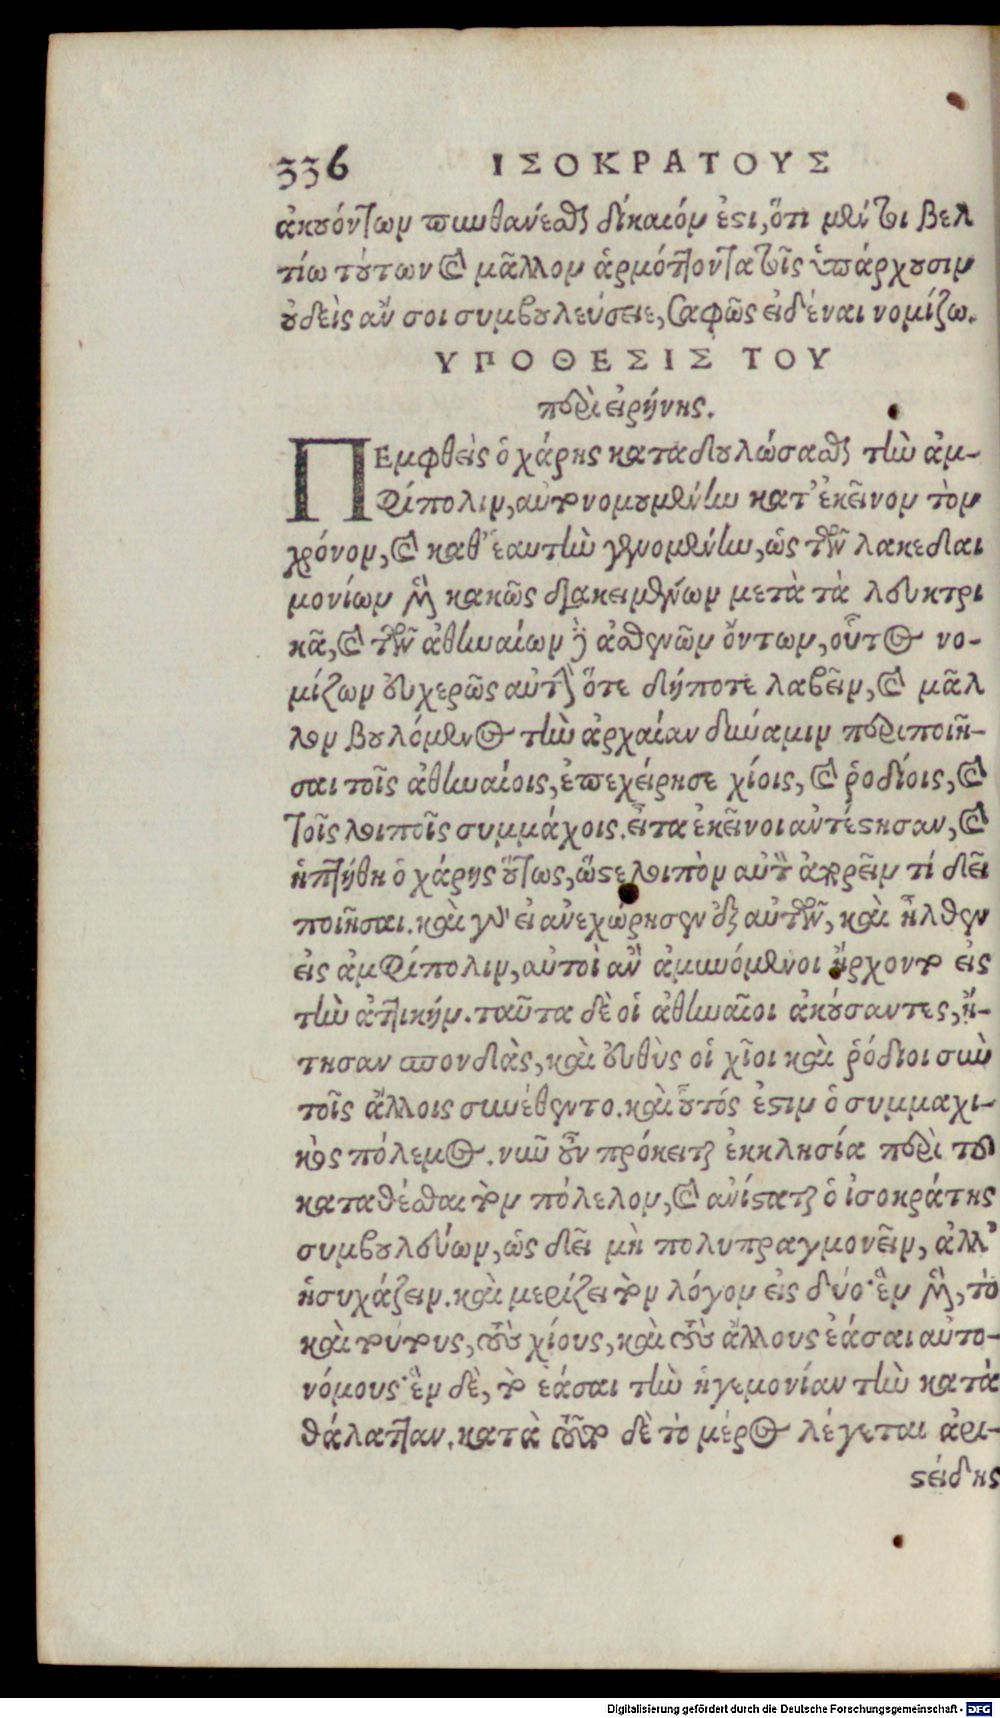 336 ΙΣΟΚΡΑΤΟΥΣ
ἀκουόντων πυνθάνεσθαι δίκαιόν ἐστι, ὅτι μέντοι βελ
τίω τούτων καὶ μᾶλλον ἁρμόττοντα τοῖς ὑπάρχουσιν
οὐδεὶς ἄν σοι συμβουλεύσειε, σαφῶς εἰδέναι νομίζω.
ΥΠΟΘΕΣΙΣ ΤΟΥ
περὶ εἰρήνης.
ΠΕμφθεὶς ὁ χάρης καταδουλώσασθαι τὴν ἀμ-
φίπολιν, αὐτονομουμένην κατ' ἐκεῖνον τὸν
χρόνον, καὶ καθ' ἑαυτὴν γενομένην, ὡς τῶν λακεδαι
μονίων μὲν κακῶς διακειμένων μετὰ τὰ λευκτρι
κᾶ, καὶ τῶν ἀθηναίων δὲ ἀσθενῶν ὄντων, οὗτος νο-
μίζων εὐχερῶς αὐτὴν ὅτε δήποτε λαβεῖν, καὶ μᾶλ
λον βουλόμενος τὴν ἀρχαίαν δύναμιν περιποιῆ-
σαι τοῖς ἀθηναίοις, ἐπεχείρησε χίοις, καὶ ῥοδίοις, καὶ
τοῖς λοιποῖς συμμάχοις. εἶτα ἐκεῖνοι ἀντέστησαν, καὶ
ἡττήθη ὁ χάρης οὕτως, ὥστε λοιπὸν αὐτὸν ἀπορεῖν τί δεῖ
ποιῆσαι. καὶ γὰρ εἰ ἀνεχώρησεν ἐξ αὐτῶν, καὶ ἦλθεν
εἰς ἀμφίπολιν, αὐτοὶ ἂν ἀμυνόμενοι ἤρχοντο εἰς
τὴν ἀττικήν. ταῦτα δὲ οἱ ἀθηναῖοι ἀκούσαντες, ἤ-
τησαν σπονδὰς, καὶ εὐθὺς οἱ χῖοι καὶ ῥόδιοι σὺν
τοῖς ἄλλοις συνέθεντο. καὶ οὗτός ἐστιν ὁ συμμαχι-
κὸς πόλεμος. νῦν οὖν πρόκειται ἐκκλησία περὶ τοῦ
καταθέσθαι τὸν πόλελον, καὶ ἀνίσταται ὁ ἰσοκράτης
συμβουλεύων, ὡς δεῖ μὴ πολυπραγμονεῖν, ἀλλ'
ἡσυχάζειν. καὶ μερίζει τὸν λόγον εἰς δύο· ἓν μὲν, τὸ
καὶ τούτους, τοὺς χίους, καὶ τοὺς ἄλλους ἐάσαι αὐτο-
νόμους· ἓν δὲ, τὸ ἐάσαι τὴν ἡγεμονίαν τὴν κατὰ
θάλατταν. κατὰ τοῦτο δὲ τὸ μέρος λέγεται ἀρι-
στείδης
Digitalisierung gefördert durch die Deutsche Forschungsgemeinschaft - DFG